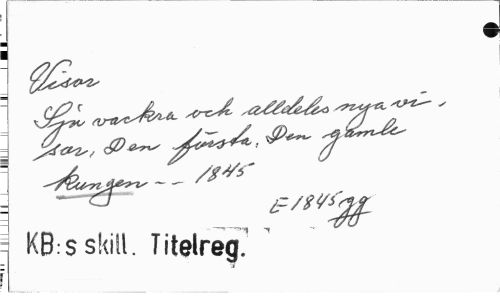 Visor
Sju vackra och alldeles nya vi-
sor, Den första, Den gamle
kungen -- 1845
E 1845 gg
KB:s skill. Titelreg.